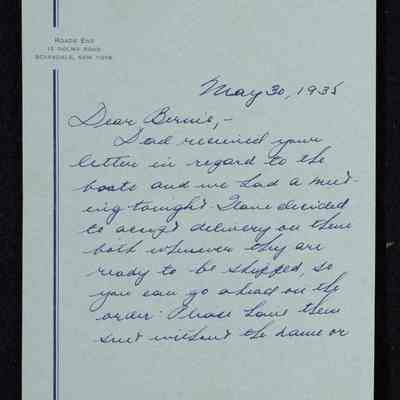 ROADS END
15 HOLMA ROAD
SCARSDALE, NEW YORK
May 30, 1935
Dear Bernie,-
Dad received your
letter in regard to the
boats and we had a meet-
ing tonight I have decided
to accept delivery on them
both whenever they are
ready to be shipped, so
you can go ahead on the
order. Please have them
sent without the name or